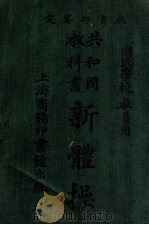 教育部審定
國民學校教員用
共和國
教科書
新體操
上海商務印書館出版